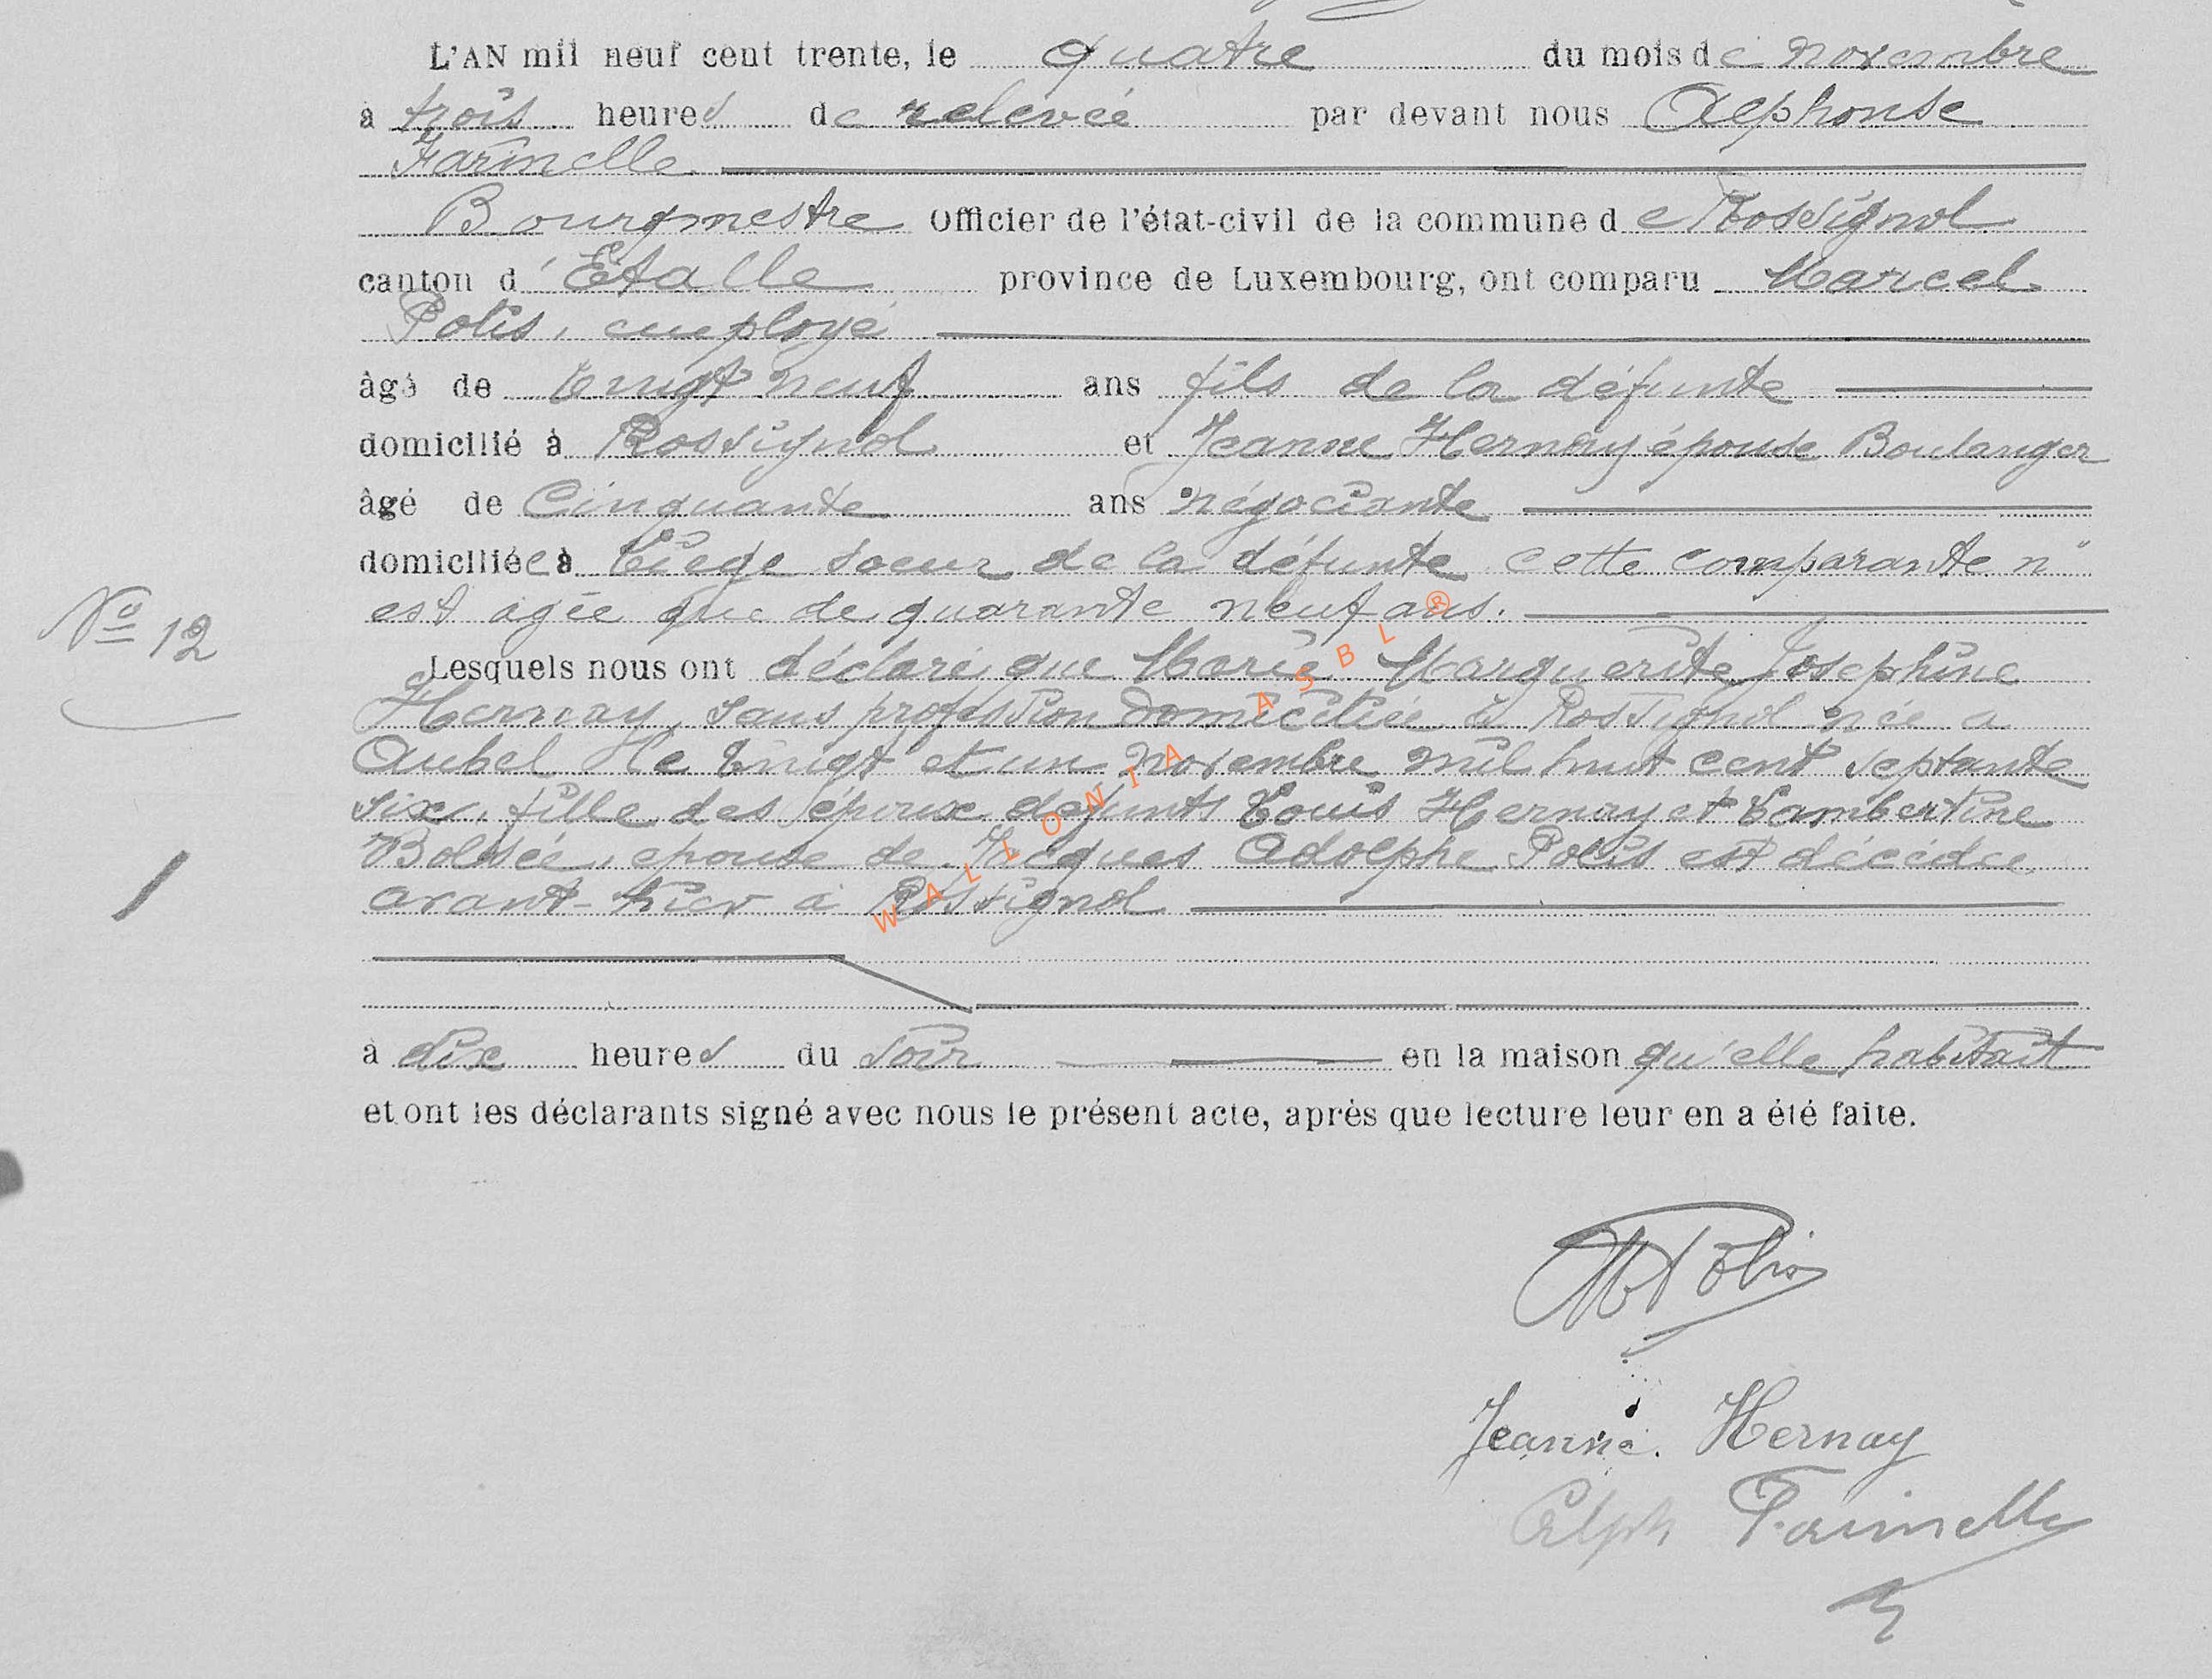 L'AN mil neuf cent trente, le quatre du mois de novembre
à trois heures de relevée par devant nous Alphonse
Farinelle
Bourgmestre Officier de l'état-civil de la commune de Rossignol
canton d'Etalle province de Luxembourg, ont comparu Marcel
Polis, employé
âgé de vingt neuf ans fils de la défunte
domicilié à Rossignol et Jeanne Hernay épouse Boulanger
âgé de Cinquante ans négociante
domiciliée à Liège soeur de la défunte cette comparante n'
est agée que de quarante neuf ans.
Nº 12
Lesquels nous ont déclaré que Marie Marguerite Josephine
Hernay, sans profession domiciliée à Rossignol née a
Aubel le vingt et un novembre mil huit cent septante
six, fille des époux défunts Louis Hernay et Lambertine
épouse de Jacques Adolphe Polis est décédée
avant-hier à Rossignol
WALLONIA ASBL ®
à dix heures du soir en la maison qu'elle habitait
et ont les déclarants signé avec nous le présent acte, après que lecture leur en a été faite.
M Polis
Jeanne. Hernay
Alph Farinelle